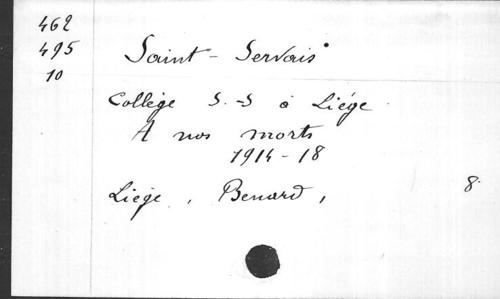 462
495
10
Saint-Servais
Collège S.-S à Liége
A nos morts
1914-18
Liége, Benard,
8.